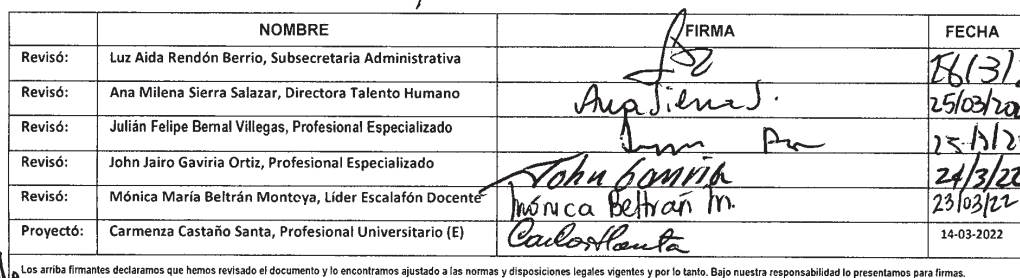 NOMBRE FIRMA FECHA
Revisó: Luz Aida Rendón Berrio, Subsecretaria Administrativa
Revisó: Ana Milena Sierra Salazar, Directora Talento Humano Ana Sierra S. 25/03/20
Revisó: Julián Felipe Bernal Villegas, Profesional Especializado
Revisó: John Jairo Gaviria Ortiz, Profesional Especializado John Gaviria 24/3/22
Revisó: Mónica María Beltrán Montoya, Líder Escalafón Docente Mónica Beltrán M. 23/03/22
Proyectó: Carmenza Castaño Santa, Profesional Universitario (E) 14-03-2022
Los arriba firmantes declaramos que hemos revisado el documento y lo encontramos ajustado a las normas y disposiciones legales vigentes y por lo tanto. Bajo nuestra responsabilidad lo presentamos para firmas.